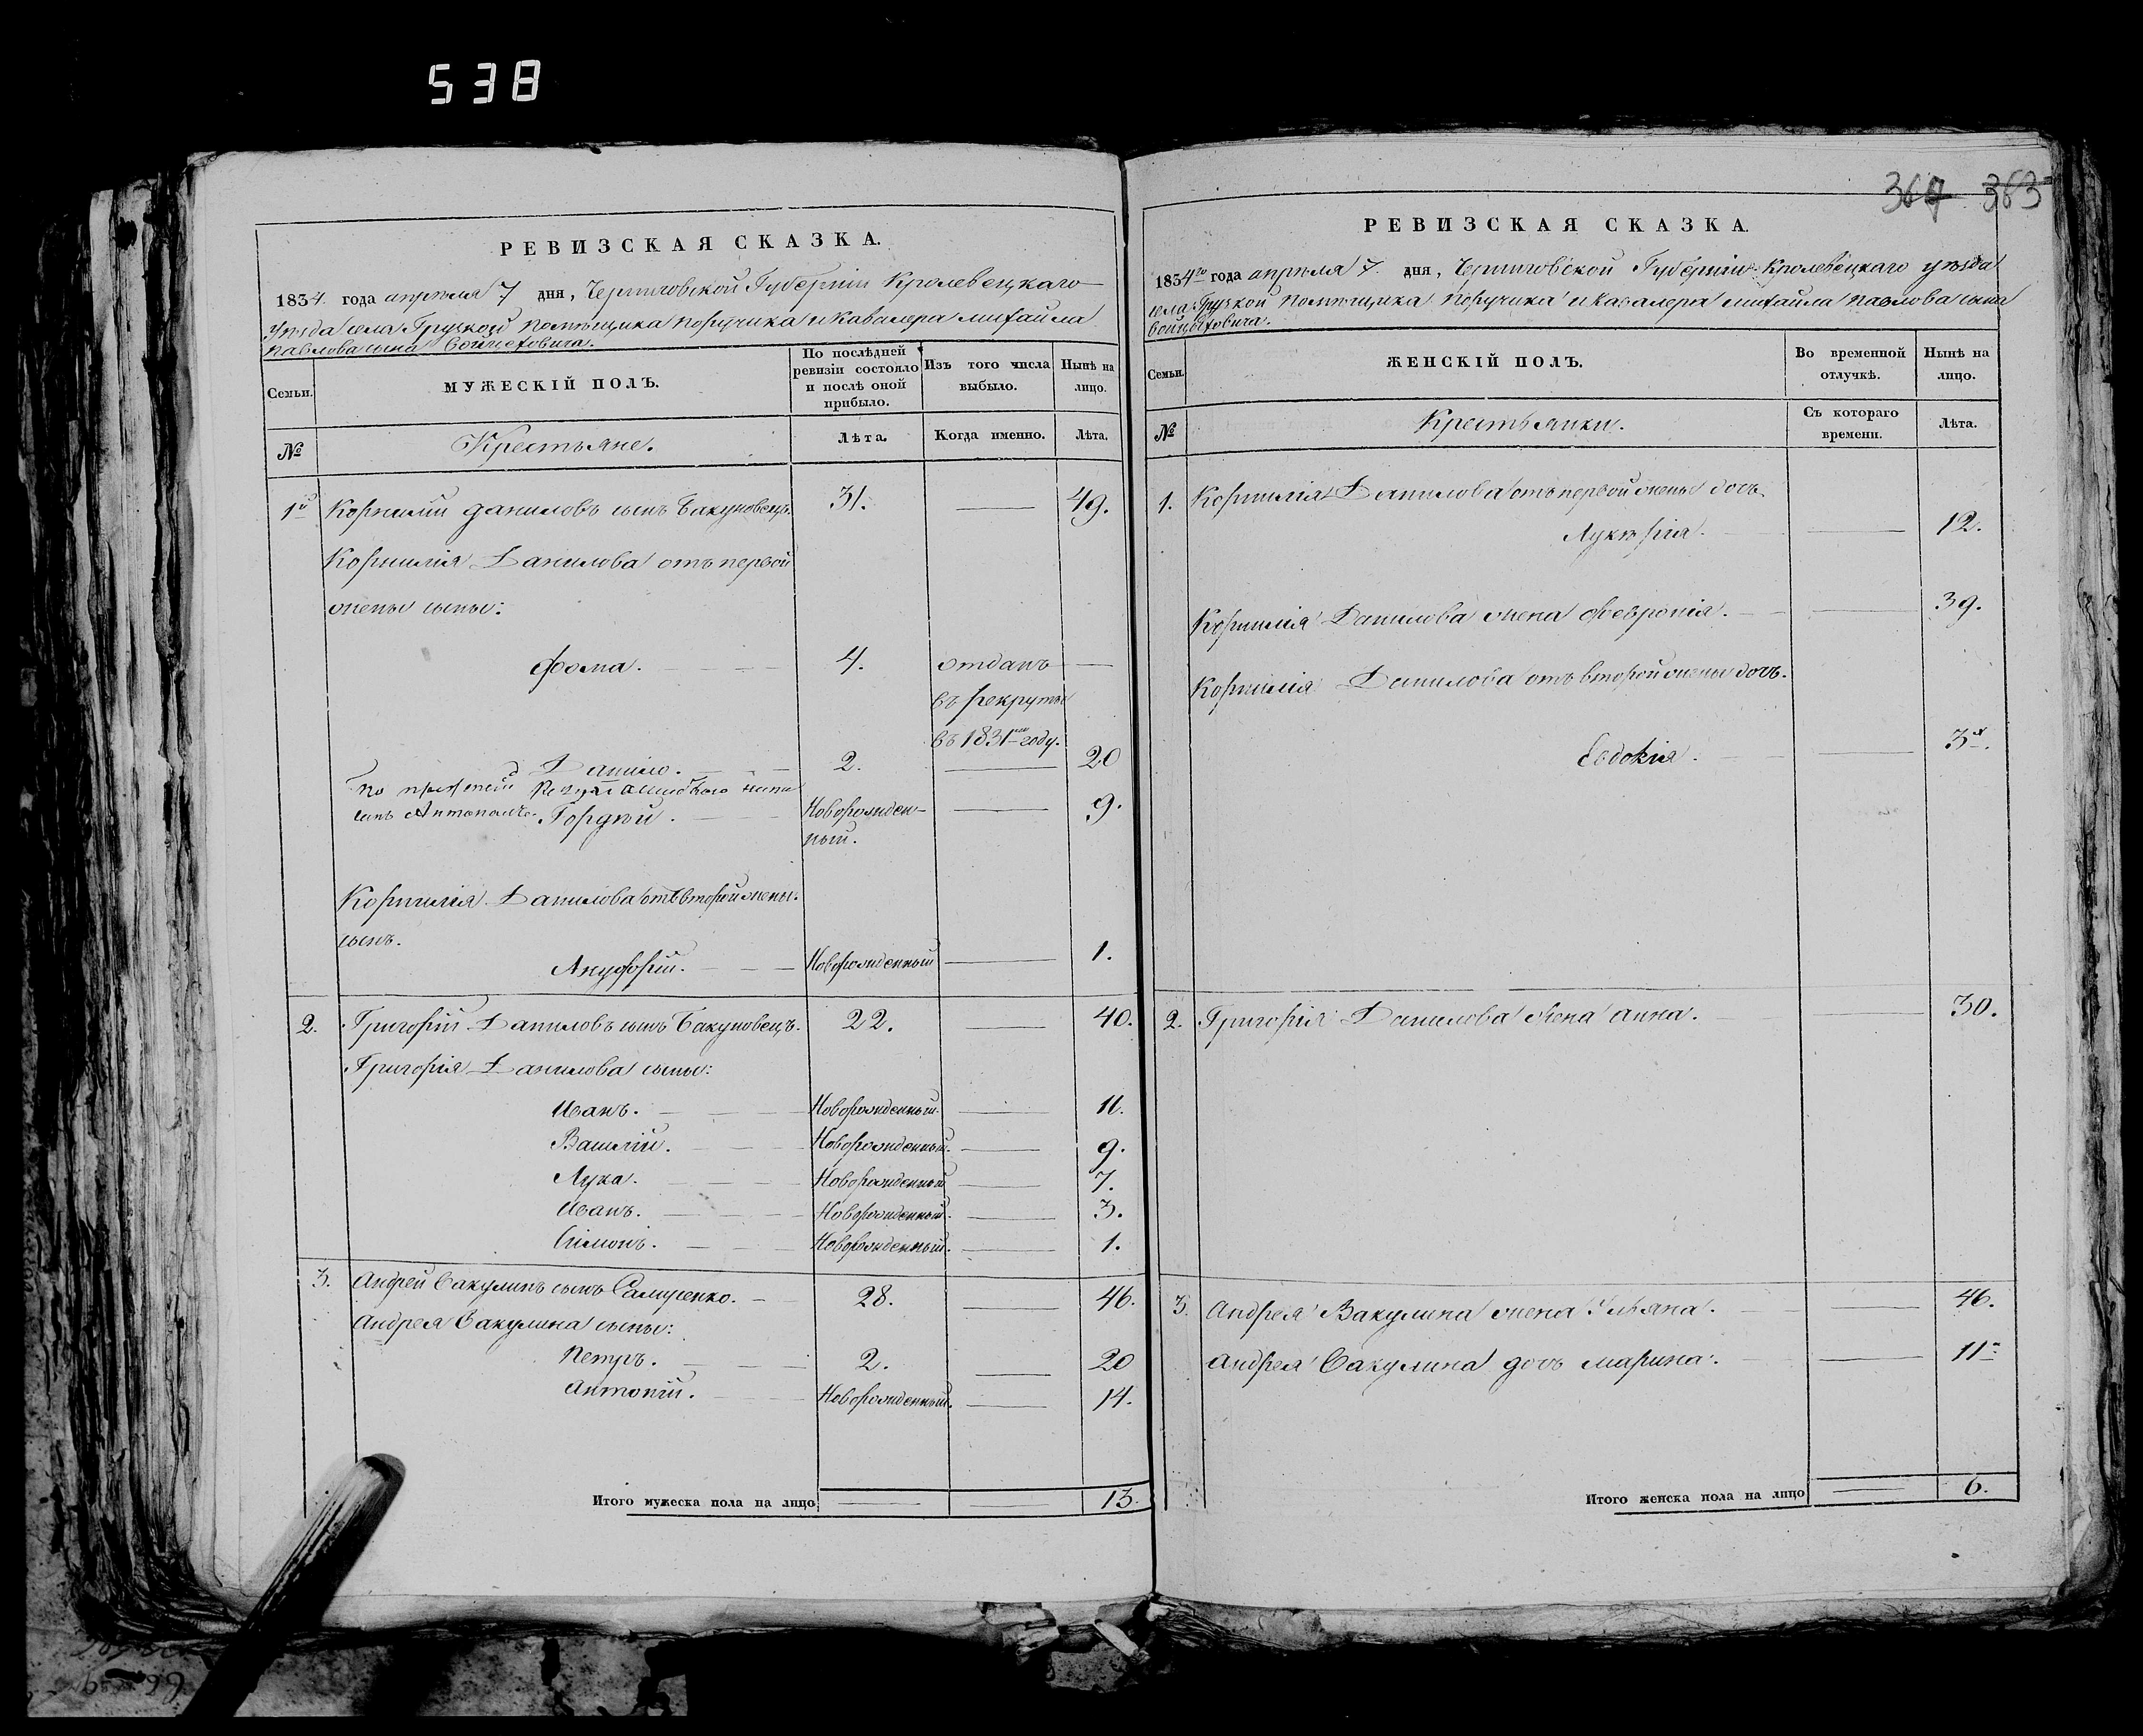 538
367 363
РЕВИЗСКАЯ СКАЗКА.
1834. года апреля 7 дня, Черниговской Губерніи Кролевецкаго
уезда села Грузкой помещика поручика и Кавалера михайла
павлова сына Войцеховича.
Семьи.
МУЖЕСКІЙ ПОЛЪ.
По послѣдней ревизіи состояло и послѣ оной прибыло.
Изъ того числа выбыло.
Нынѣ на лицо.
№
Крестьяне.
Лѣта.
Когда именно.
Лѣта.
1й Корнилий даниловъ сынъ Бакуновецъ. 31. 49.
Корнилія Данилова отъ первой
жены сыны:
Фома. 4. отданъ
въ рекруты
въ 1831м году.
Данило. 2. 20
по
сынъ Гордей. Новорожден- 9.
ный.
Корнилія Данилова отъ второй жены
сынъ.
Ануфрій. Новорожденный 1.
2. Григорій Даниловъ сынъ Бакуновецъ. 22. 40.
Григорія Данилова сыны:
Иванъ. Новорожденный. 11.
Василий. Новорожденный. 9.
Лука. Новорожденный 7.
Иванъ. Новорожденный. 3.
Симонъ. Новорожденный. 1.
3. Андрей Вакулинъ сынъ 28. 46.
Андрея Вакулина сыны:
Петръ. 2. 20
Антоній. Новорожденный. 14.
Итого мужеска пола на лицо 13.
РЕВИЗСКАЯ СКАЗКА.
1834го года апреля 7. дня, Черниговской Губерніи Кролевецкаго уезда
села Грузкой помещика поручика и кавалера михайла павлова сына
Войцеховича.
Семьи.
ЖЕНСКІЙ ПОЛЪ.
Во временной отлучкѣ.
Нынѣ на лицо.
№
Крестьянки.
Съ котораго времени.
Лѣта.
1. Корнилія Данилова отъ первой жены дочь
Лукерія. 12.
Корнилія Данилова жена Февронія. 39.
Корнилія Данилова отъ второй жены дочь.
Евдокія. 3х.
2. Григорія Данилова жена анна. 30.
3. Андрея Вакулина жена Ульяна. 46.
Андрея Вакулина дочь марина. 11
Итого женска пола на лицо 6.